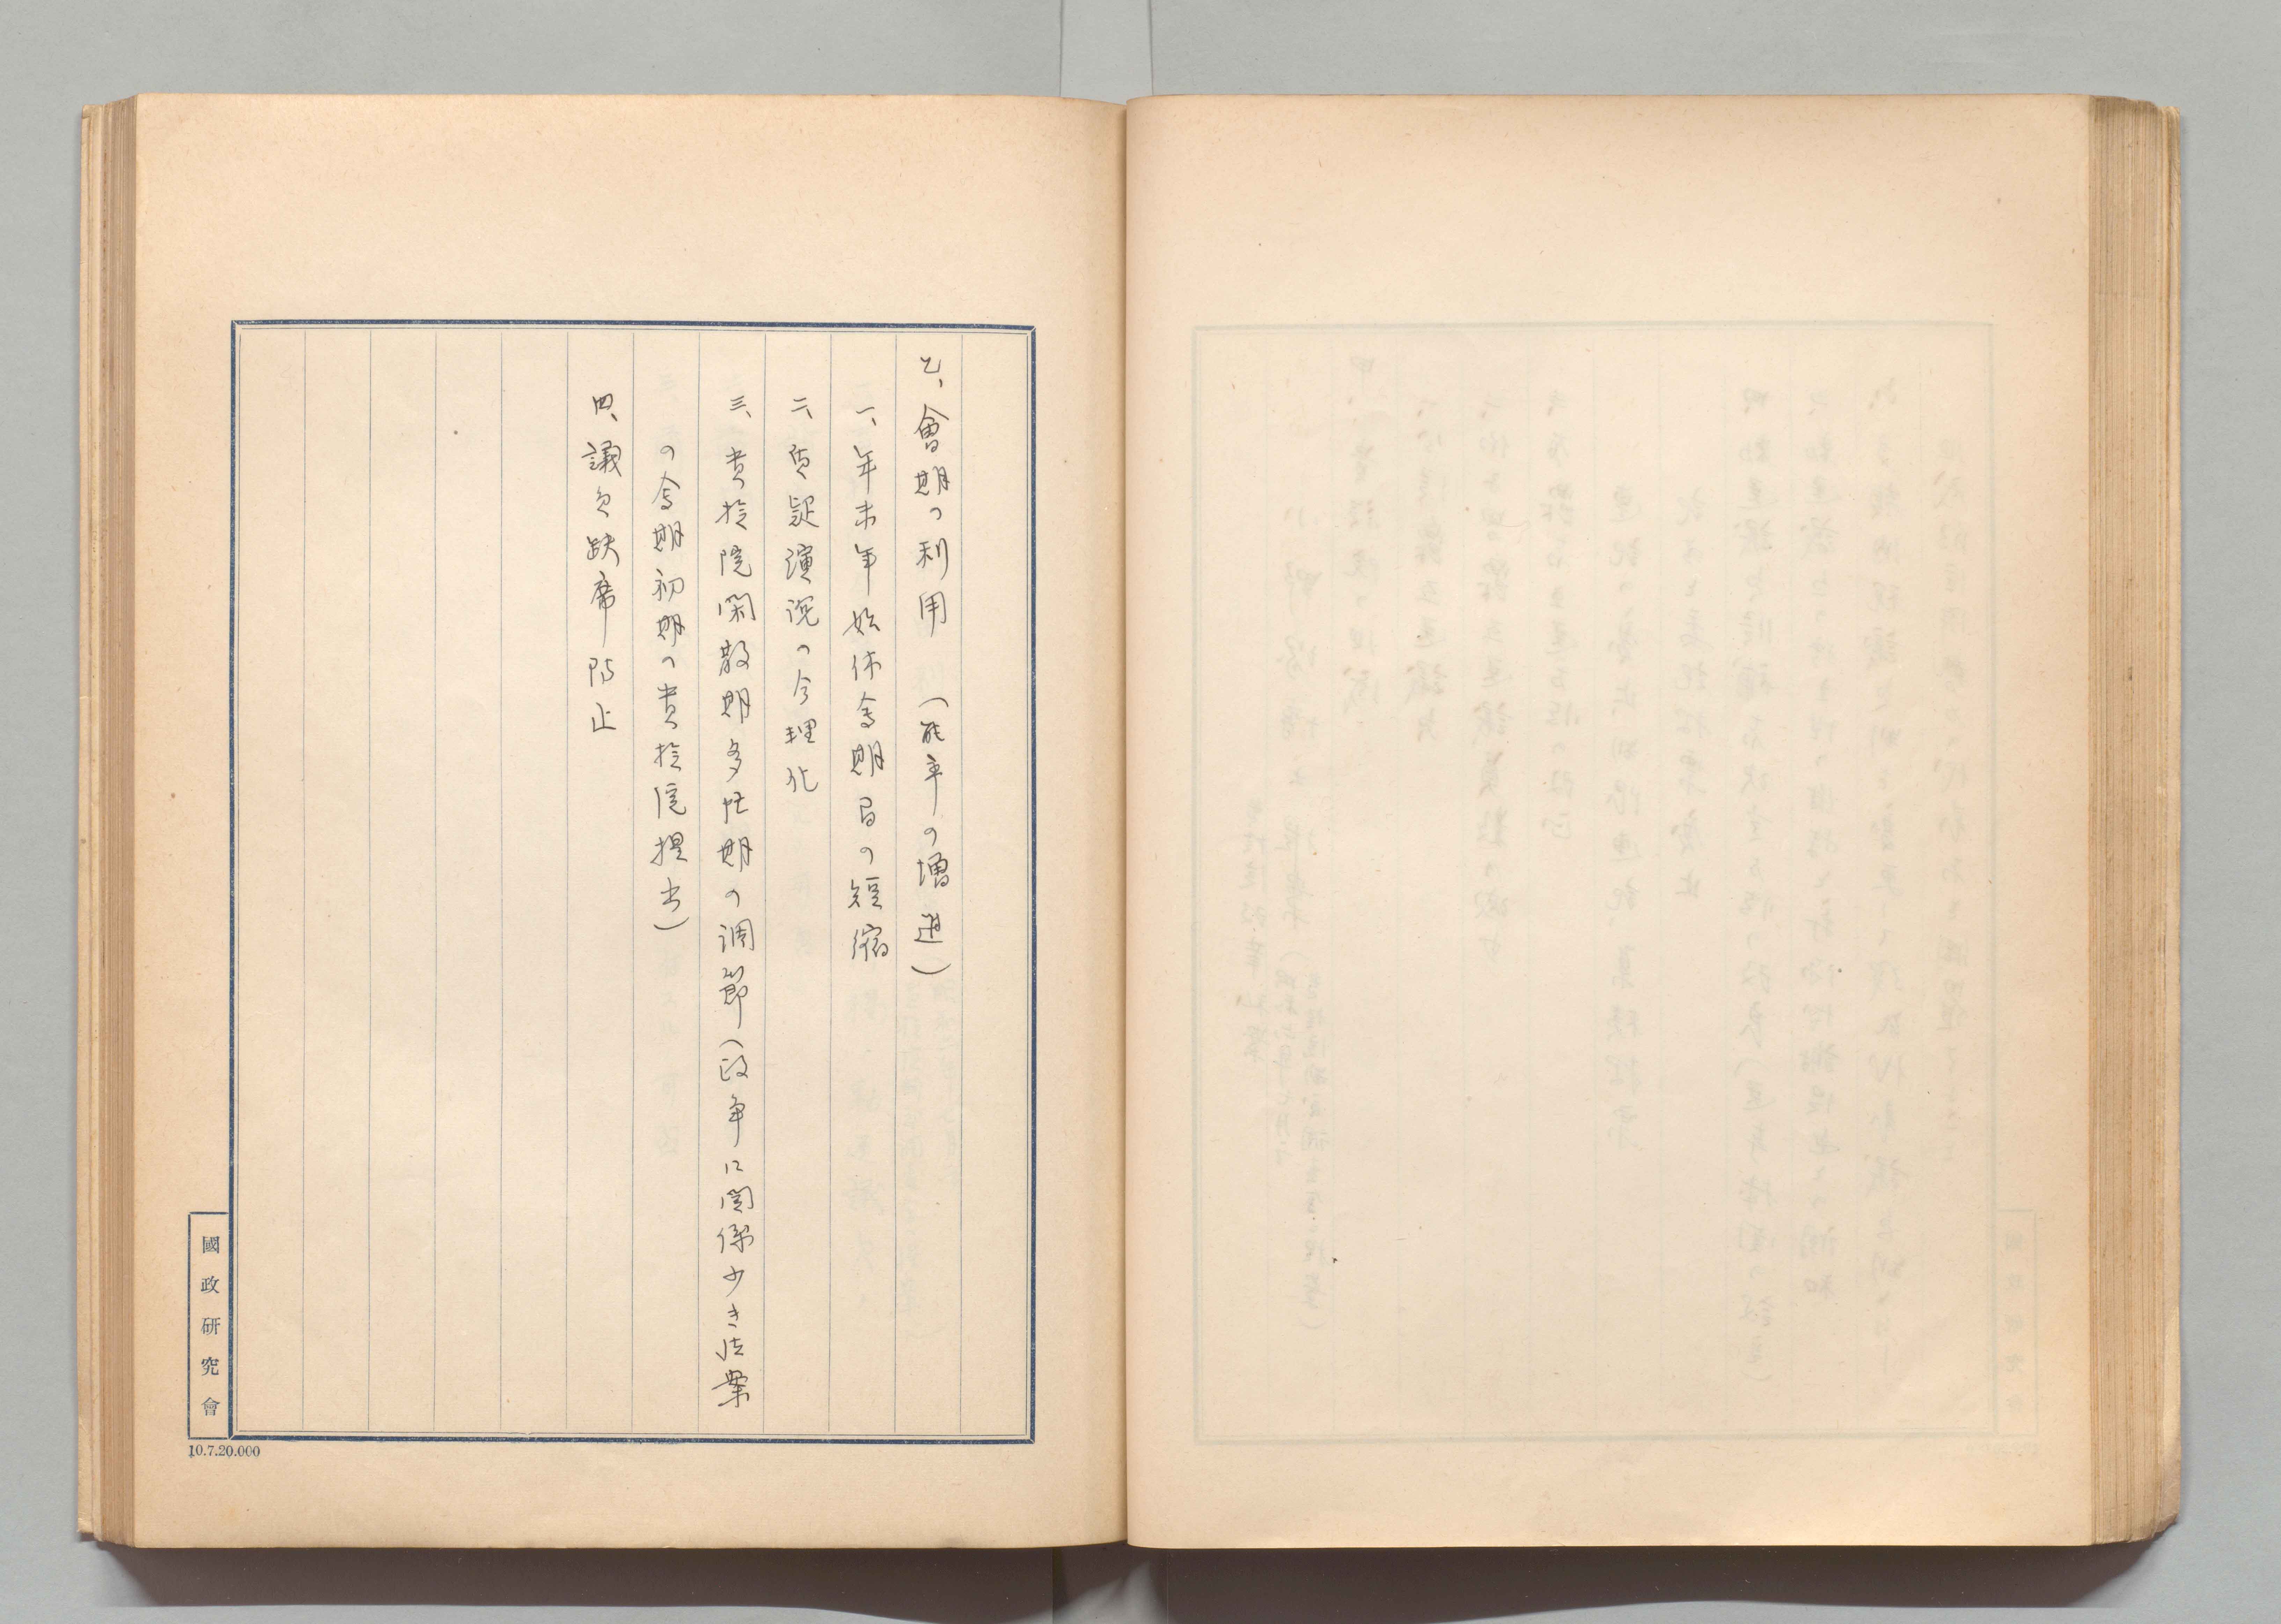 乙、會期の利用　(能率の増進)
一、年末年始休會期日の短縮
二、質疑演説の合理化
三、貴族院閑散期多忙期の調節(政争に関係少き法案
の会期初期の貴族院提出)
四、議員欠席防止
國政研究會
10.7.20.000